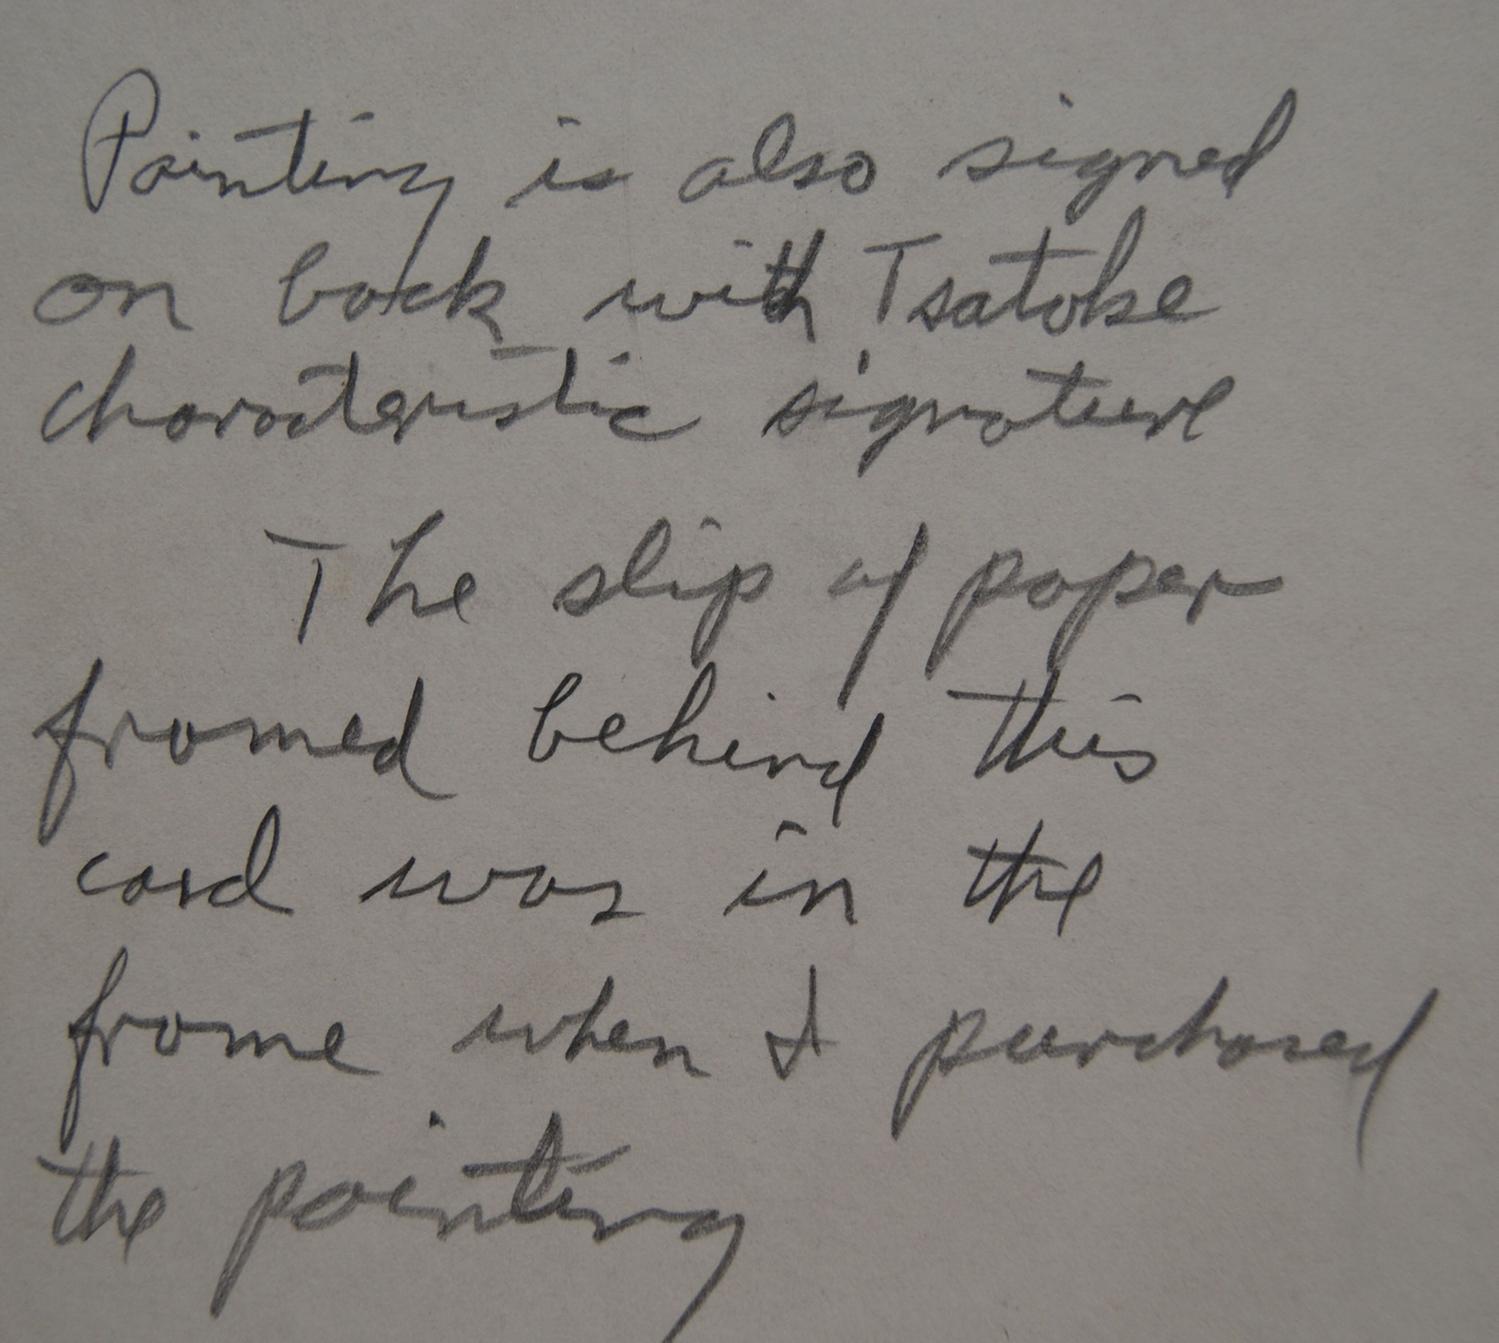 Painting is also signed
on back with Tsatoke
charateristic signature
The slip of paper
framed behind this
card was in the
frame when I purchased
the painting